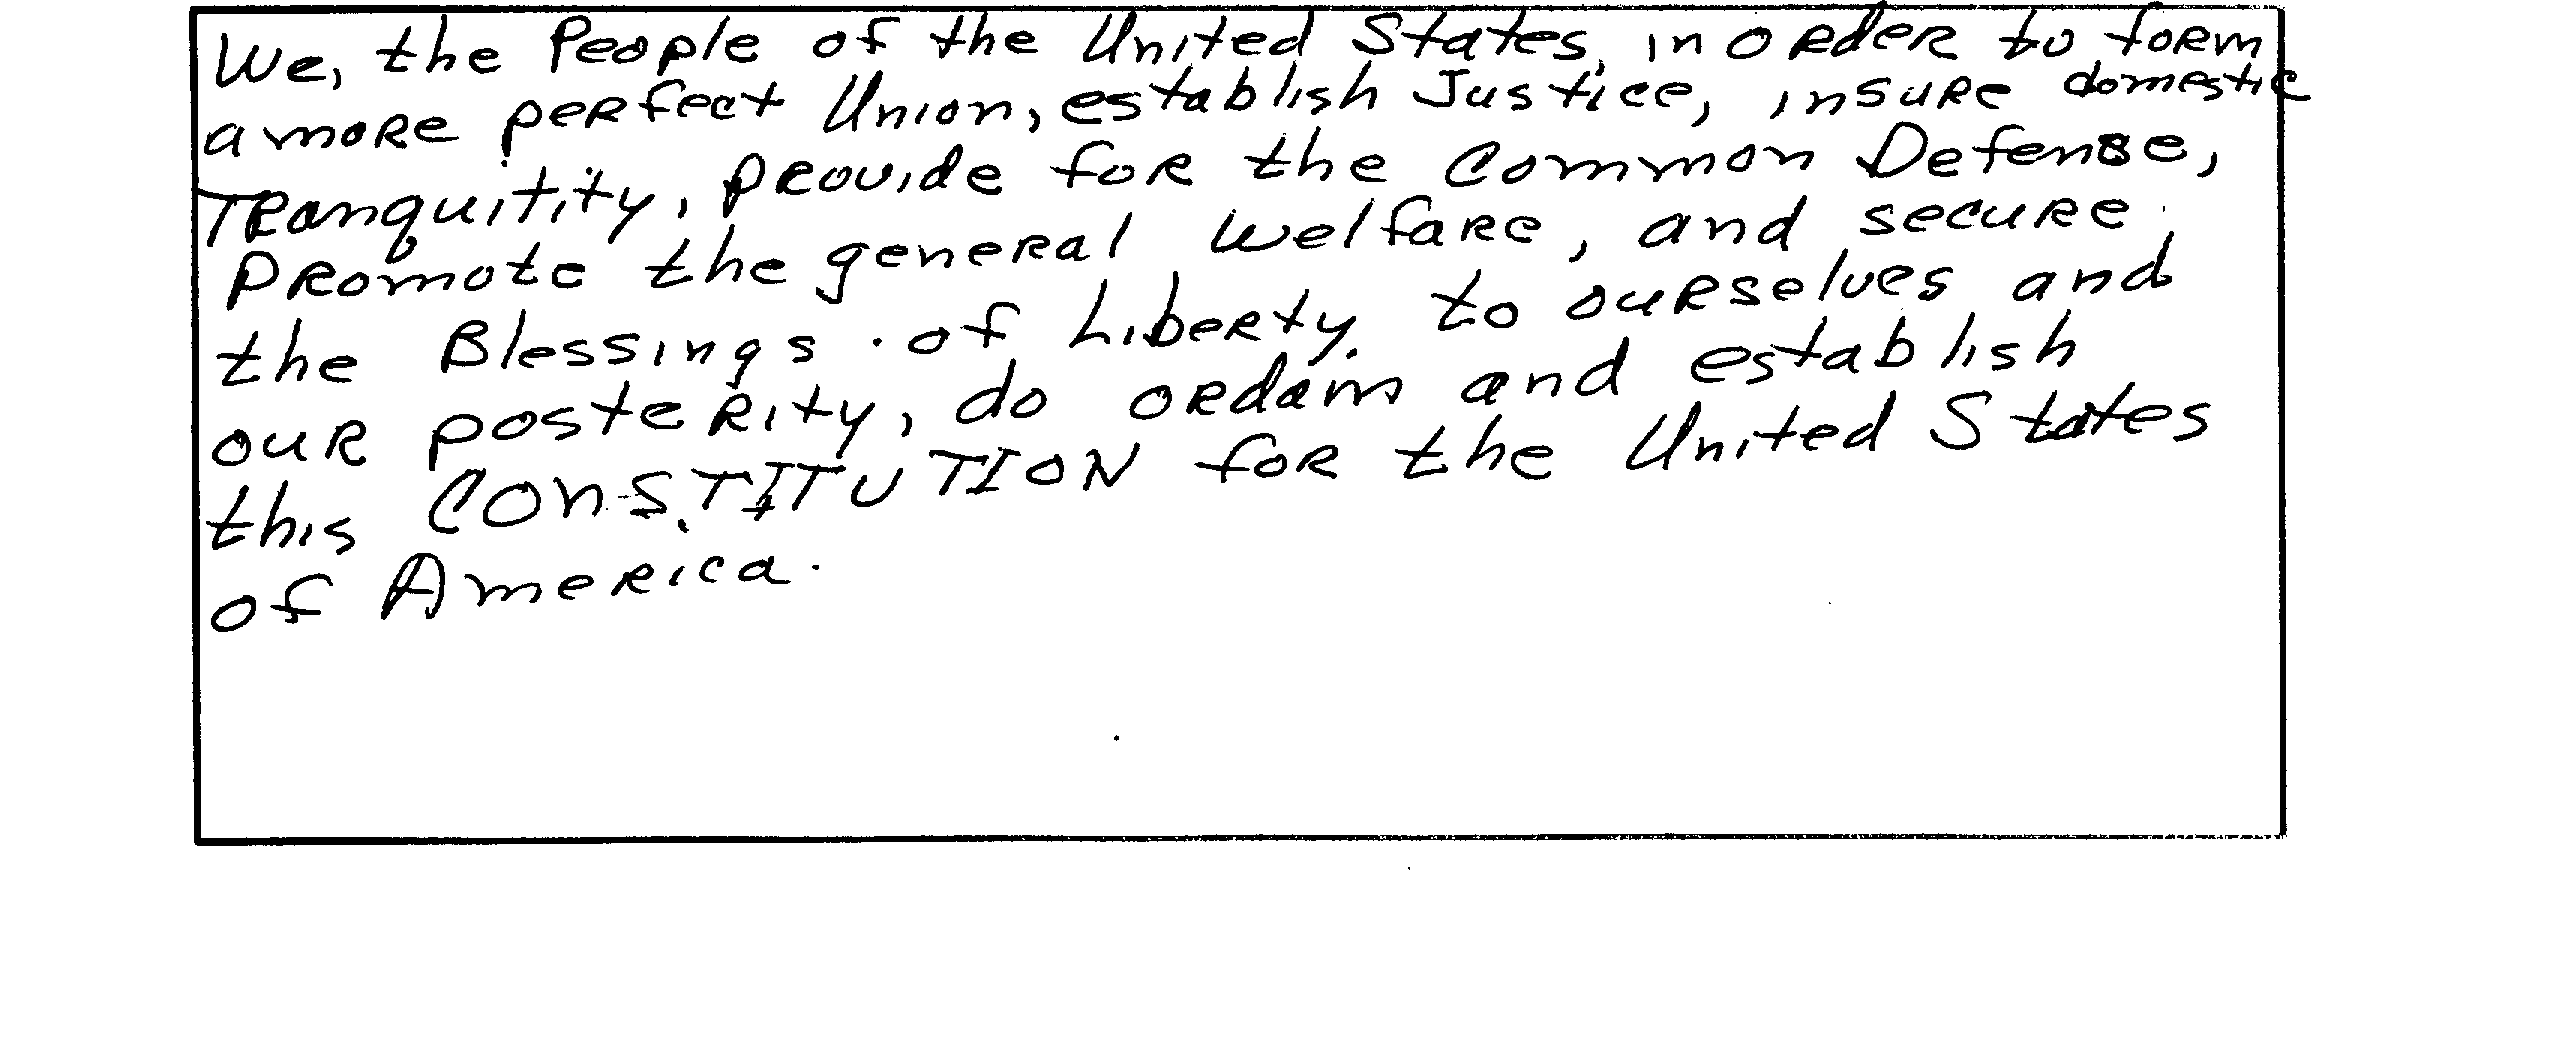 We, the People of the United States, in order to form
a more perfect Union, establish Justice, insure domestic
Tranquitity, provide for the Common Defense,
promote the general welfare, and secure
the Blessings of Liberty, to ourselves and
our posterity, do ordain and establish
this CONSTITUTION for the United States
of America.